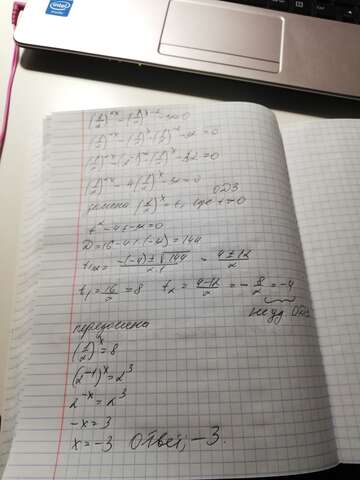 intel
(1/2)^2x - (1/2)^x-2 - 32 = 0
(1/2)^2x - (1/2)^x · (1/2)^-2 - 32 = 0
(1/2)^2x - 4(1/2)^x - 32 = 0
замена (1/2)^x = t, где t>0 ОДЗ
t² - 4t - 32 = 0
D = 16 - 4 · (-32) = 144
t1,2 = (-(-4) ± √144)/(2·1) = (4 ± 12)/2
t1 = 16/2 = 8 t2 = (4-12)/2 = -8/2 = -4
не уд. ОДЗ
(1/2)^x = 8
(2^-1)^x = 2^3
2^-x = 2^3
-x = 3
x = -3 Ответ: -3.